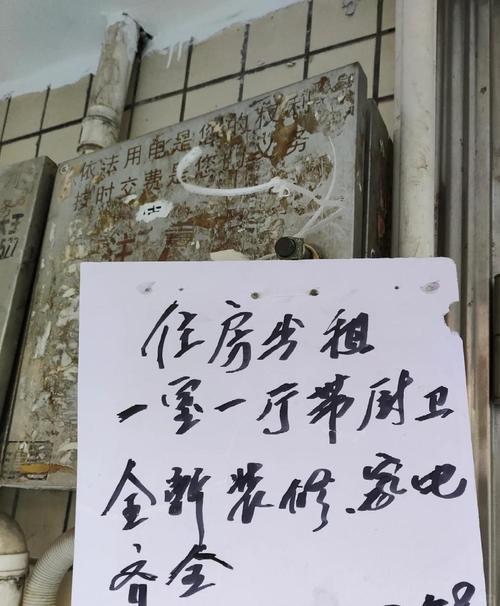 依法用电是您的权利
按时交费是您的义务
527
住房出租
一室一厅带厨卫
全新装修、家电
齐全